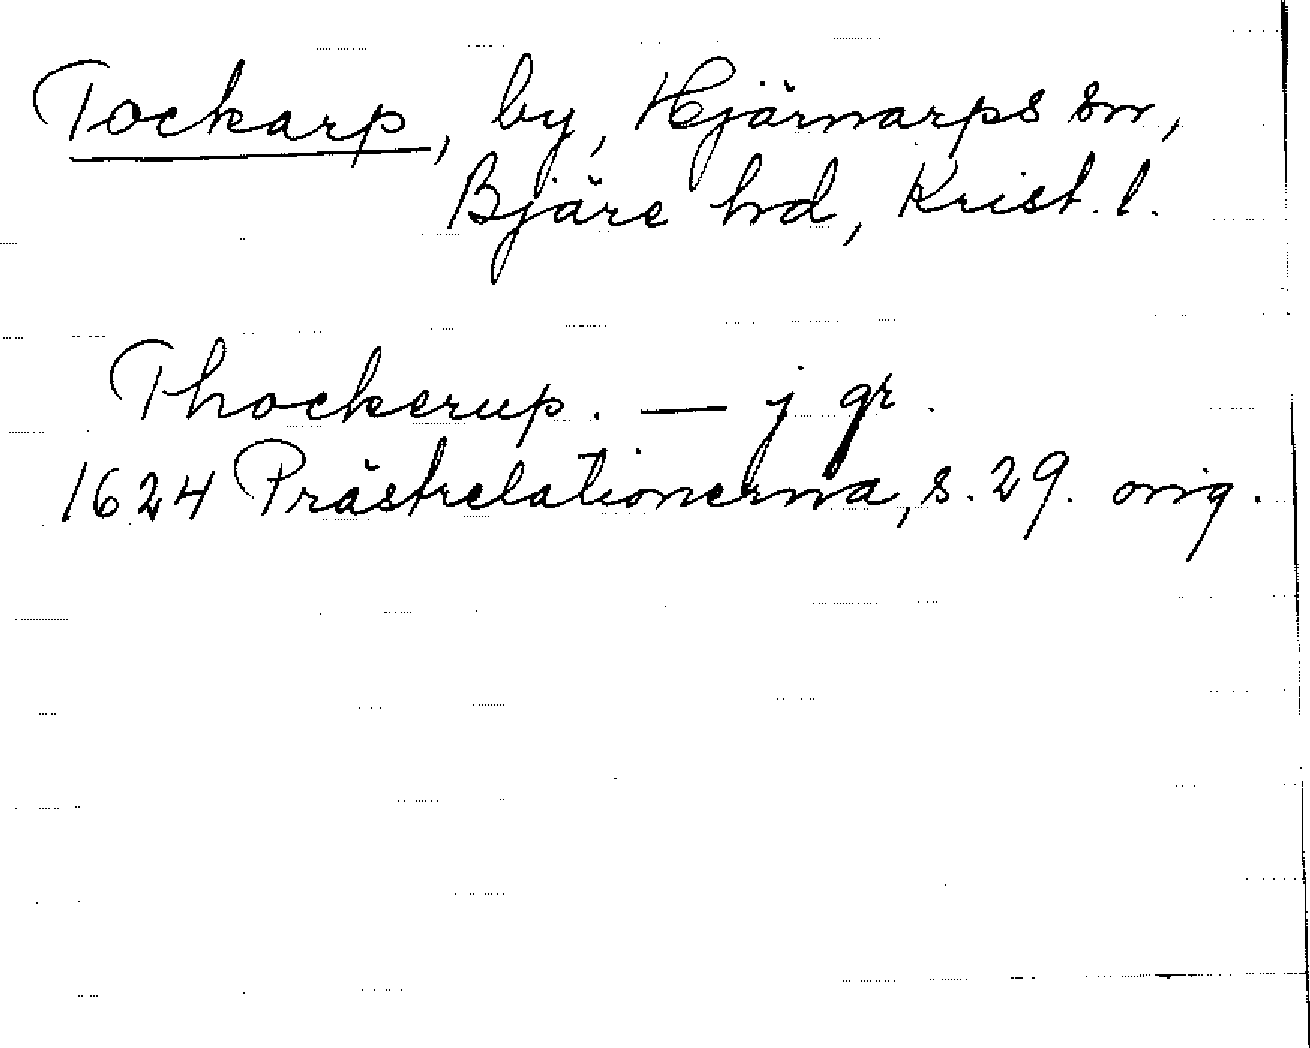 Tockarp, by, Hjärnarps sn,
Bjäre hd, Krist. l.
Thockerup. — j gr.
1624 Prästrelationerna, s. 29. orig.